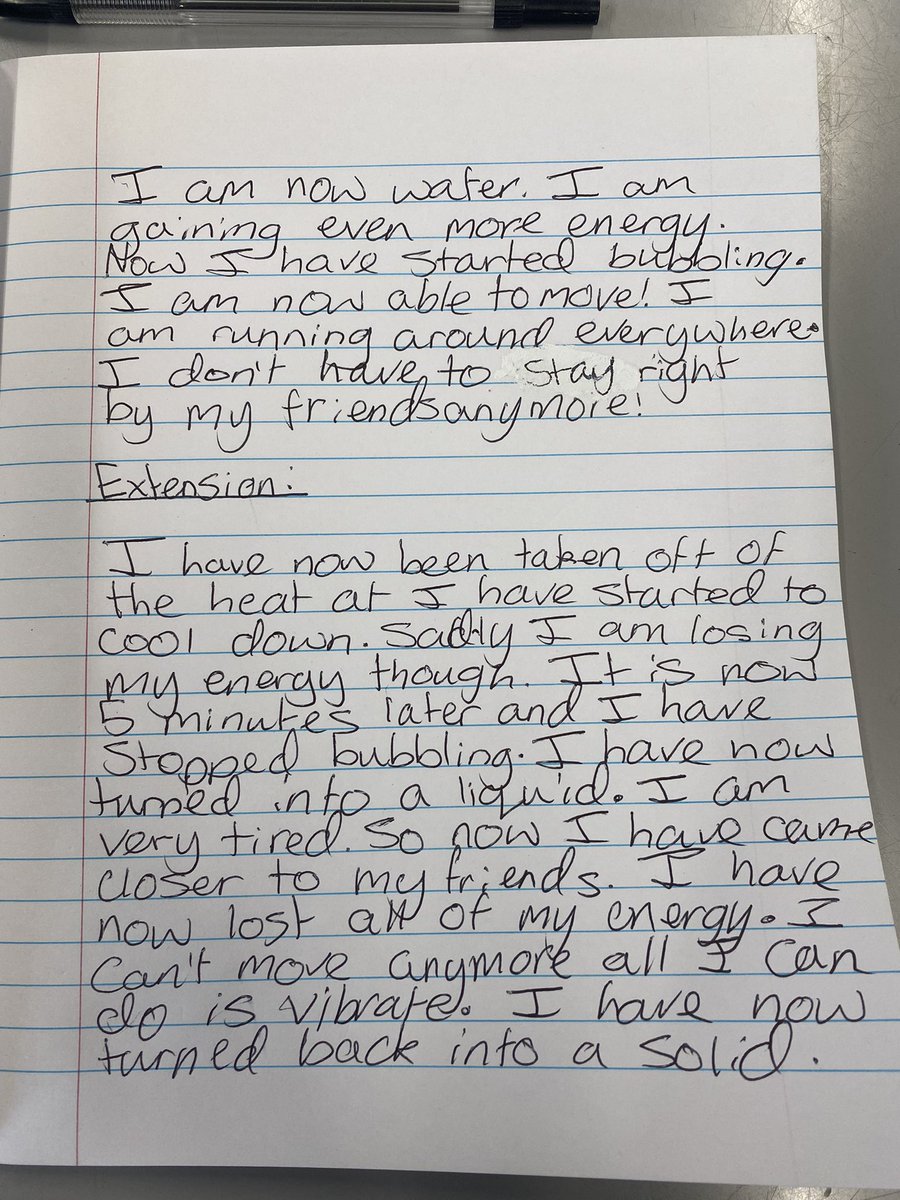 I am now water. I am
gaining even more energy.
Now I have started bubbling.
I am now able to move! I
am running around everywhere.
I don't have to stay right
by my friends anymore!
Extension:
I have now been taken off of
the heat at I have started to
cool down. Sadly I am losing
my energy though. It is now
5 minutes later and I have
stopped bubbling. I have now
turned into a liquid. I am
very tired. So now I have came
closer to my friends. I have
now lost all of my energy. I
can't move anymore all I can
do is vibrate. I have now
turned back into a solid.